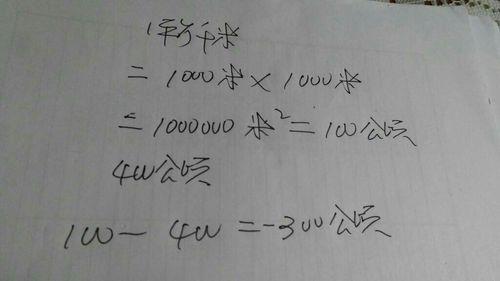 1平方千米
=1000米×1000米
=1000000米²=100公顷
400公顷
100-400=-300公顷